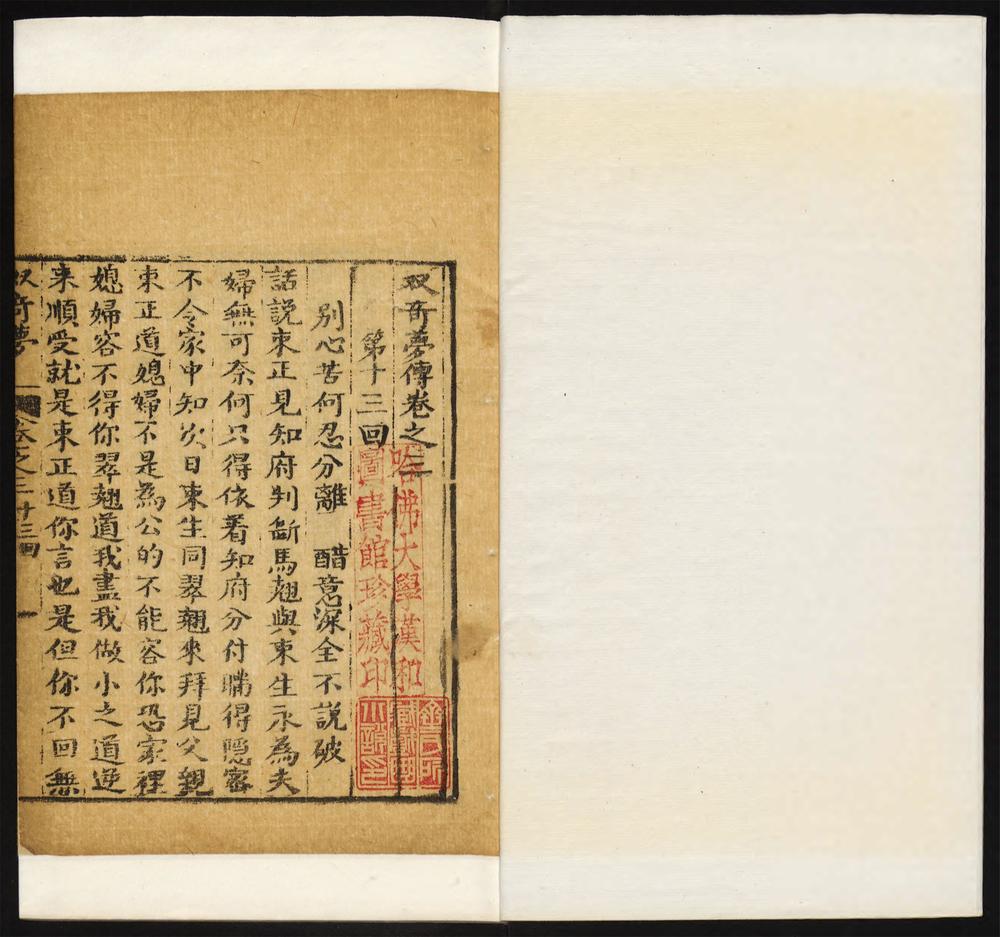 双奇夢傳卷之三
第十三回
別心苦何忍分離　醋意深全不説破
話説束正見知府判斷馬翹與束生永為夫
婦無可奈何只得依着知府分付瞞得隱密
不令家中知次日束生同翠翹來拜見父親
束正道媳婦不是為公的不能容你恐家裡
媳婦容不得你翠翹道我盡我做小之道逆
来順受就是束正道你言也是但你不回無
双奇夢　卷之三　十三回　一
哈佛大學漢和
圖書館珍藏印